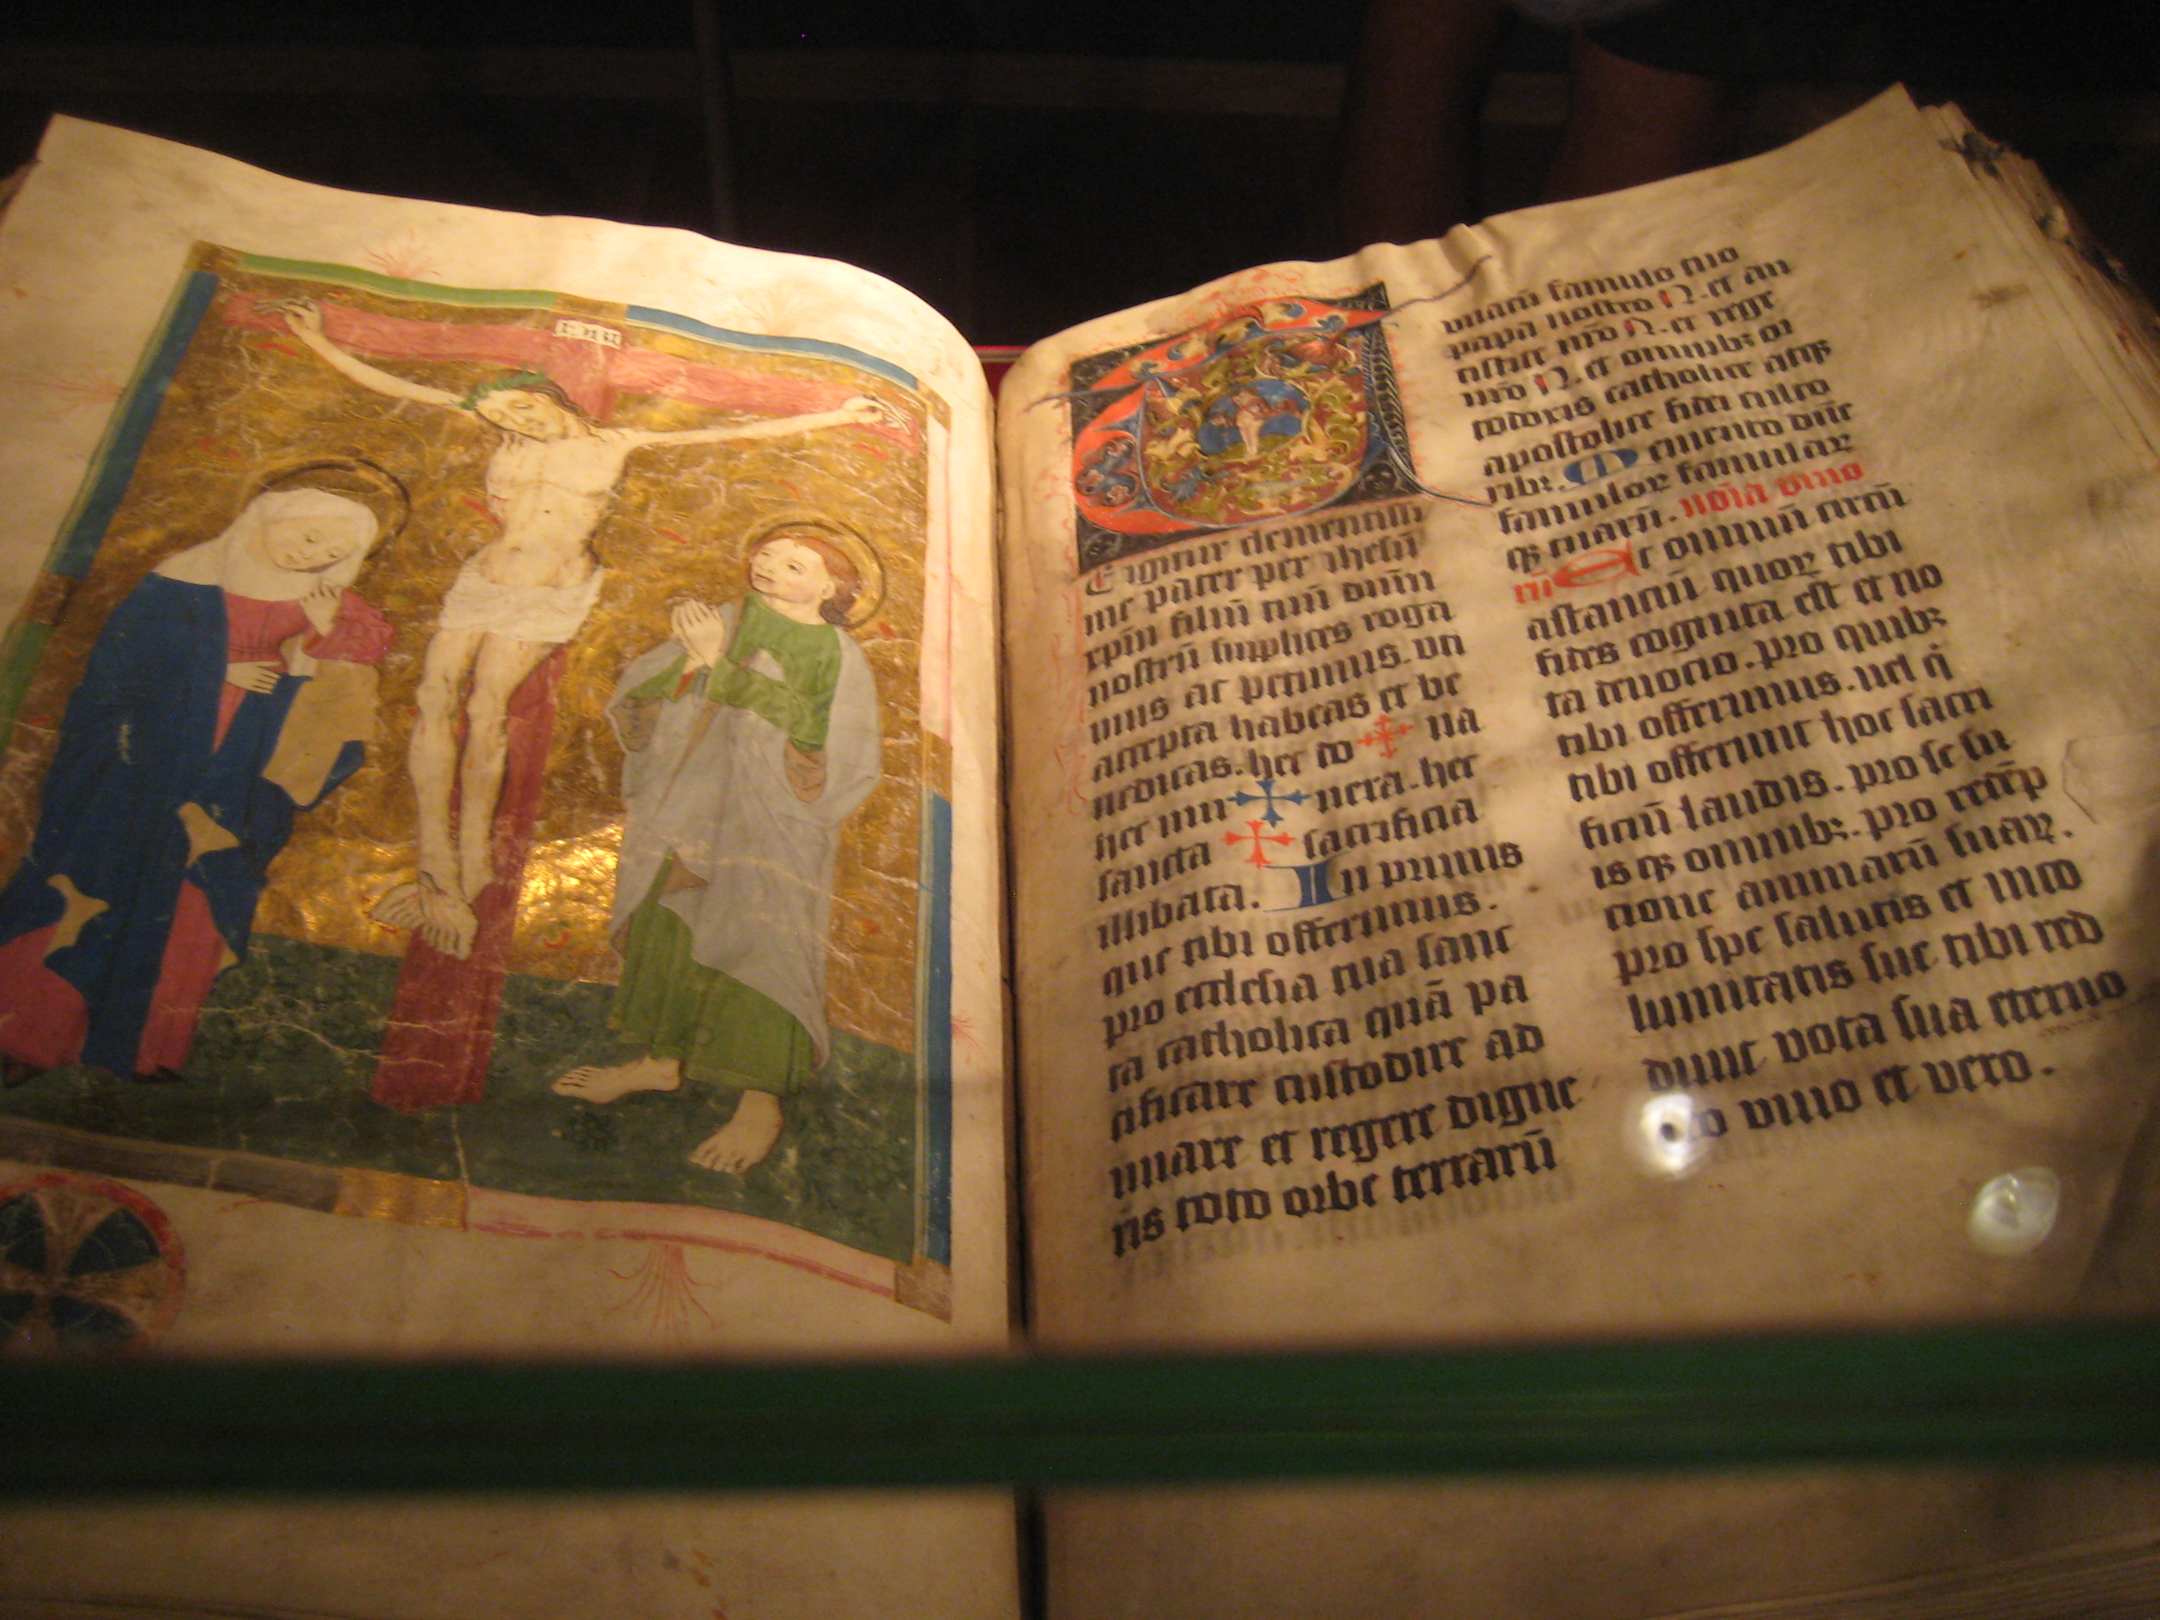 I N R I
T
E igitur clementissi
me pater per ihesū
xp̄m filiū tuū dn̄m
nostrū suplices roga
mus ac petimus. uti
accepta habeas et be
nedicas. hec do ✠ na
hec mu ✠ nera. hec
sancta ✠ sacrificia
illibata. In primis
que tibi offerimus.
pro ecclesia tua sanc
ta catholica quā pa
cificare custodire ad
unare et regere digne
ris toto orbe terrarū
unacū famulo tuo
papa nostro N. et an
tistite nr̄o N. et rege
nr̄o N. et omnibꝫ or
todoxis catholice atqꝫ
apostolice fidei culto
ribꝫ. Memento dn̄e
famuloꝝ famulaꝝ
qꝫ tuarū. noīa vivo
rū Et omniū circū
astanciū quoꝝ tibi
fides cognita est et no
ta deuocio. pro quibꝫ
tibi offerimus. uel q̇
tibi offerunt hoc sacri
ficiū laudis. pro se su
is qꝫ omnibꝫ. pro redēp
cione animarū suaꝝ.
pro spe salutis et inco
lumitatis sue tibi red
dunt vota sua eterno
deo viuo et vero.